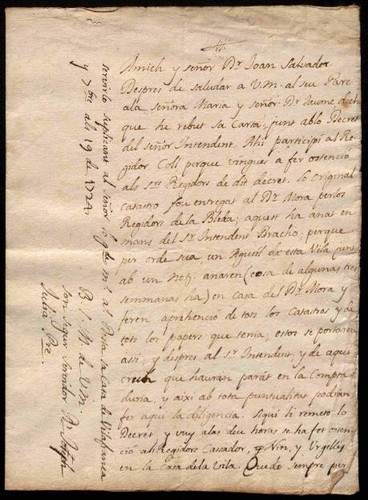 Amich y señor Dr. Joan Salvador
Despres de saludar a V.M. al seu Pare
a la señora Maria y señor Dr. Jaume
que he rebut sa Carta, junt ab lo Decret
del señor Intendent. Ahi participi al Re-
gidor Coll perque vingues a fer ostenció
als Srs. Regidors de dit decret. Lo Original
Catastro fou entregat al Dr. Mora per los
Regidors de la Bleda; aquest ha anat en
mans del Sr. Intendent Bracho; perque
per orde sua un Agutsil de esta Vila junt
ab un anaren (cosa de algunas tres
semmanas ha) en Casa del Dr. Mora y
feren aprehenció de tots los Catastros y de
tots los papers que tenia, estos se portaren
assi, y despres al Sr. Intendent, y de aqui
crech que hauran parat en la Compta-
duria, y aixi ab tota puntualitat podran
fer aqui la diligencia. Aqui li remeto lo
Decret y vuy a las deu horas se ha fet ostenció
al Regidors Cassador, y Nin, y Urgellès
en la Casa de la Vila. Quede sempre per
servirlo suplicant al Señor lo gde. ms. as. Vilafranca
y 7bre. als 19 de 1722.
B. l. M. de V.M.
son segur servidor Dr. Joseph
Julia Pre.